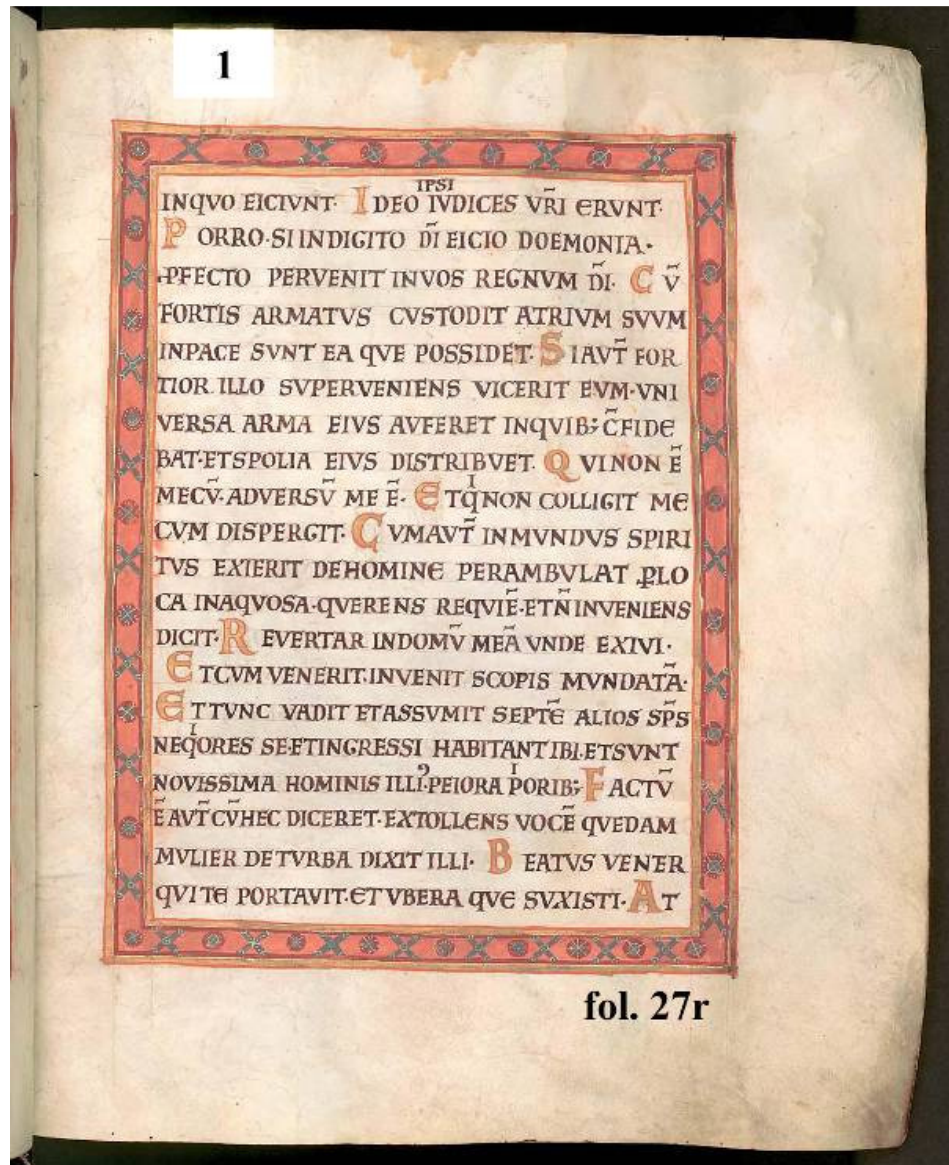 1
IPSI
INQVO EICIVNT· IDEO IVDICES VR̄I ERVNT·
PORRO·SI INDIGITO D̄I EICIO DOEMONIA·
·PFECTO PERVENIT INVOS REGNVM D̄I· CV̄
FORTIS ARMATVS CVSTODIT ATRIVM SVVM
INPACE SVNT EA QVE POSSIDET· SIAVT̄ FOR
TIOR ILLO SVPERVENIENS VICERIT EVM·VNI
VERSA ARMA EIVS AVFERET INQVIB; C̄FIDE
BAT·ETSPOLIA EIVS DISTRIBVET. QVI NON Ē
MECV̄·ADVERSV̄ ME Ē· ETQͥ NON COLLIGIT ME
CVM DISPERGIT· CVMAVT̄ INMVNDVS SPIRI
TVS EXIERIT DEHOMINE PERAMBVLAT ꝐLO
CA INAQVOSA·QVERENS REQVIĒ·ETN̄ INVENIENS
DICIT· REVERTAR INDOMV̄ MEĀ VNDE EXIVI·
ETCVM VENERIT·INVENIT SCOPIS MVNDATĀ·
ETTVNC VADIT ETASSVMIT SEPTĒ ALIOS SP̄S
NEQͥORES SE·ETINGRESSI HABITANT IBI·ETSVNT
NOVISSIMA HOMINIS ILLIꝰ·PEIORA PͥORIB; FACTV̄
Ē AVT̄ CV̄HEC DICERET·EXTOLLENS VOCĒ QVEDAM
MVLIER DETVRBA DIXIT ILLI· BEATVS VENER
QVI TE PORTAVIT·ET VBERA QVE SVXISTI· AT
fol. 27r